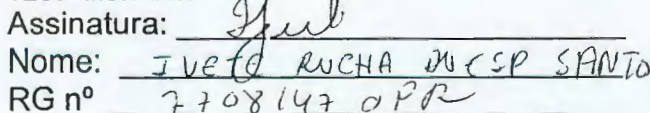 Assinatura:
Nome: IVETE ROCHA DO ESP SANTO
RG nº 7708147 0 PR